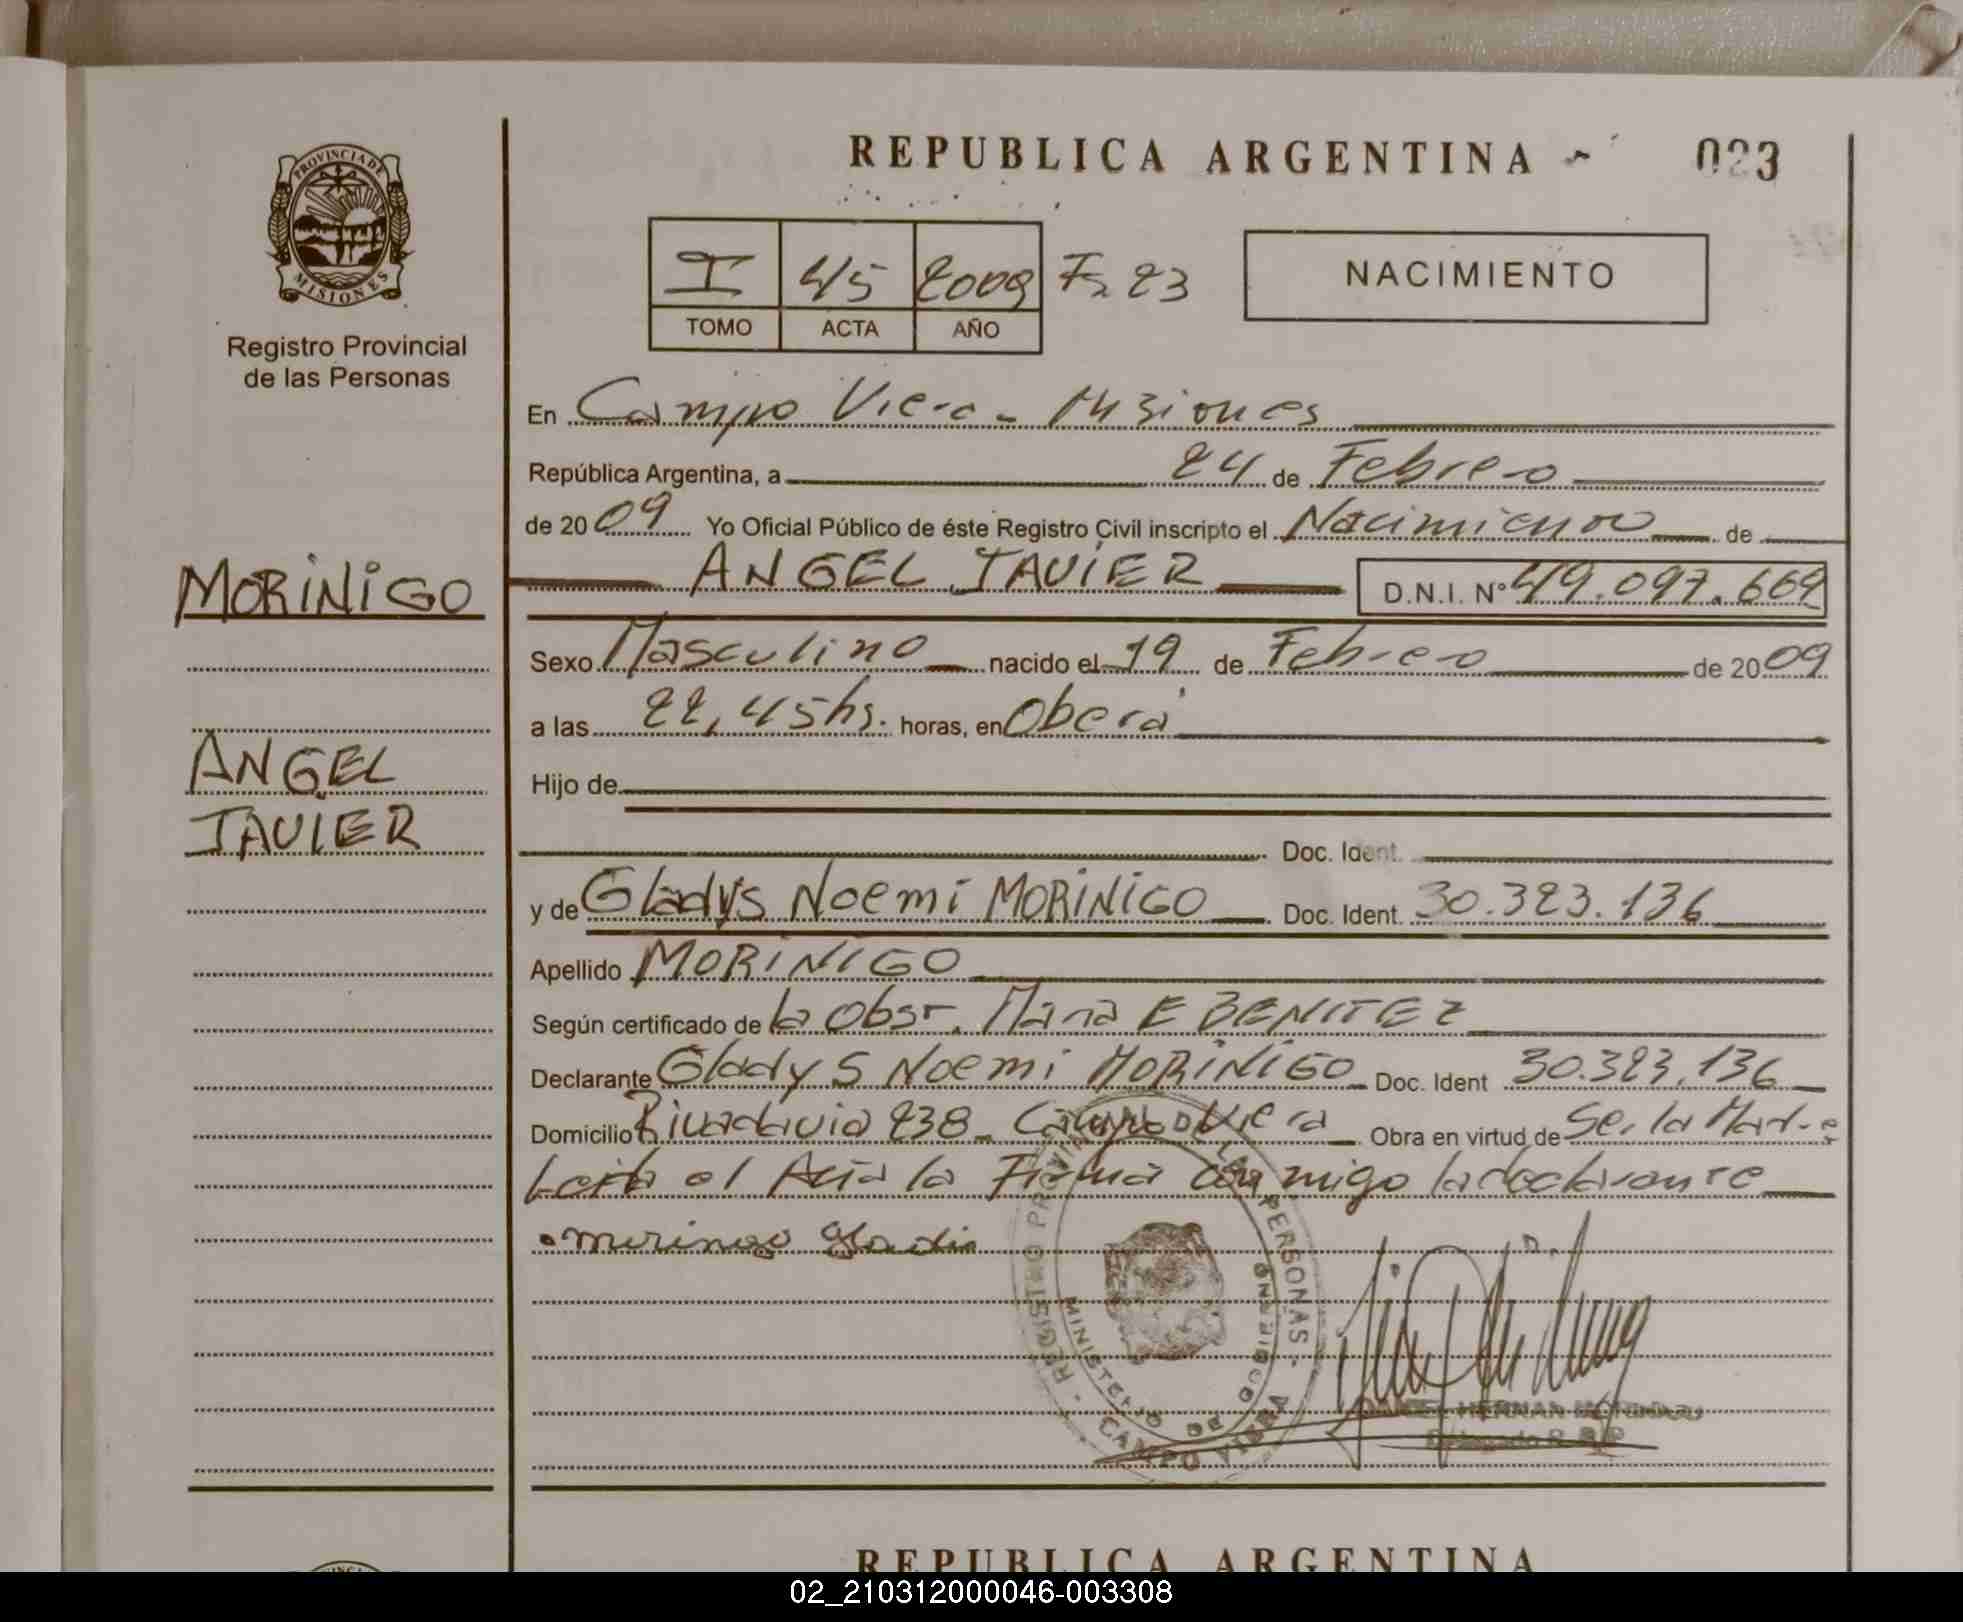 REPUBLICA ARGENTINA
023
PROVINCIA DE
MISIONES
Registro Provincial
de las Personas
I 45 2009 Fº 23
TOMO ACTA AÑO
NACIMIENTO
En Campo Viera - Misiones
República Argentina, a 24 de Febrero
de 2009 Yo Oficial Público de éste Registro Civil inscripto el Nacimiento de
MORINIGO
ANGEL JAVIER D.N.I. Nº 49.097.669
Sexo Masculino nacido el 19 de Febrero de 2009
a las 22,45hs. horas, en Oberá
ANGEL
JAVIER
Hijo de
Doc. Ident.
y de Gladys Noemi MORINIGO Doc. Ident. 30.323.136
Apellido MORINIGO
Según certificado de la Obst. Maria E BENITEZ
Declarante Gladys Noemi MORINIGO Doc. Ident 30.323.136
Domicilio Rivadavia 238 - Campo Viera Obra en virtud de Ser la Madre
Leida el Acta la Firma conmigo la declarante
morinigo gladis
REGISTRO PROVINCIAL DE LAS PERSONAS - CAMPO VIERA
MINISTERIO DE GOBIERNO
HERNAN
Delegado R. P. P
REPUBLICA ARGENTINA
02_210312000046-003308